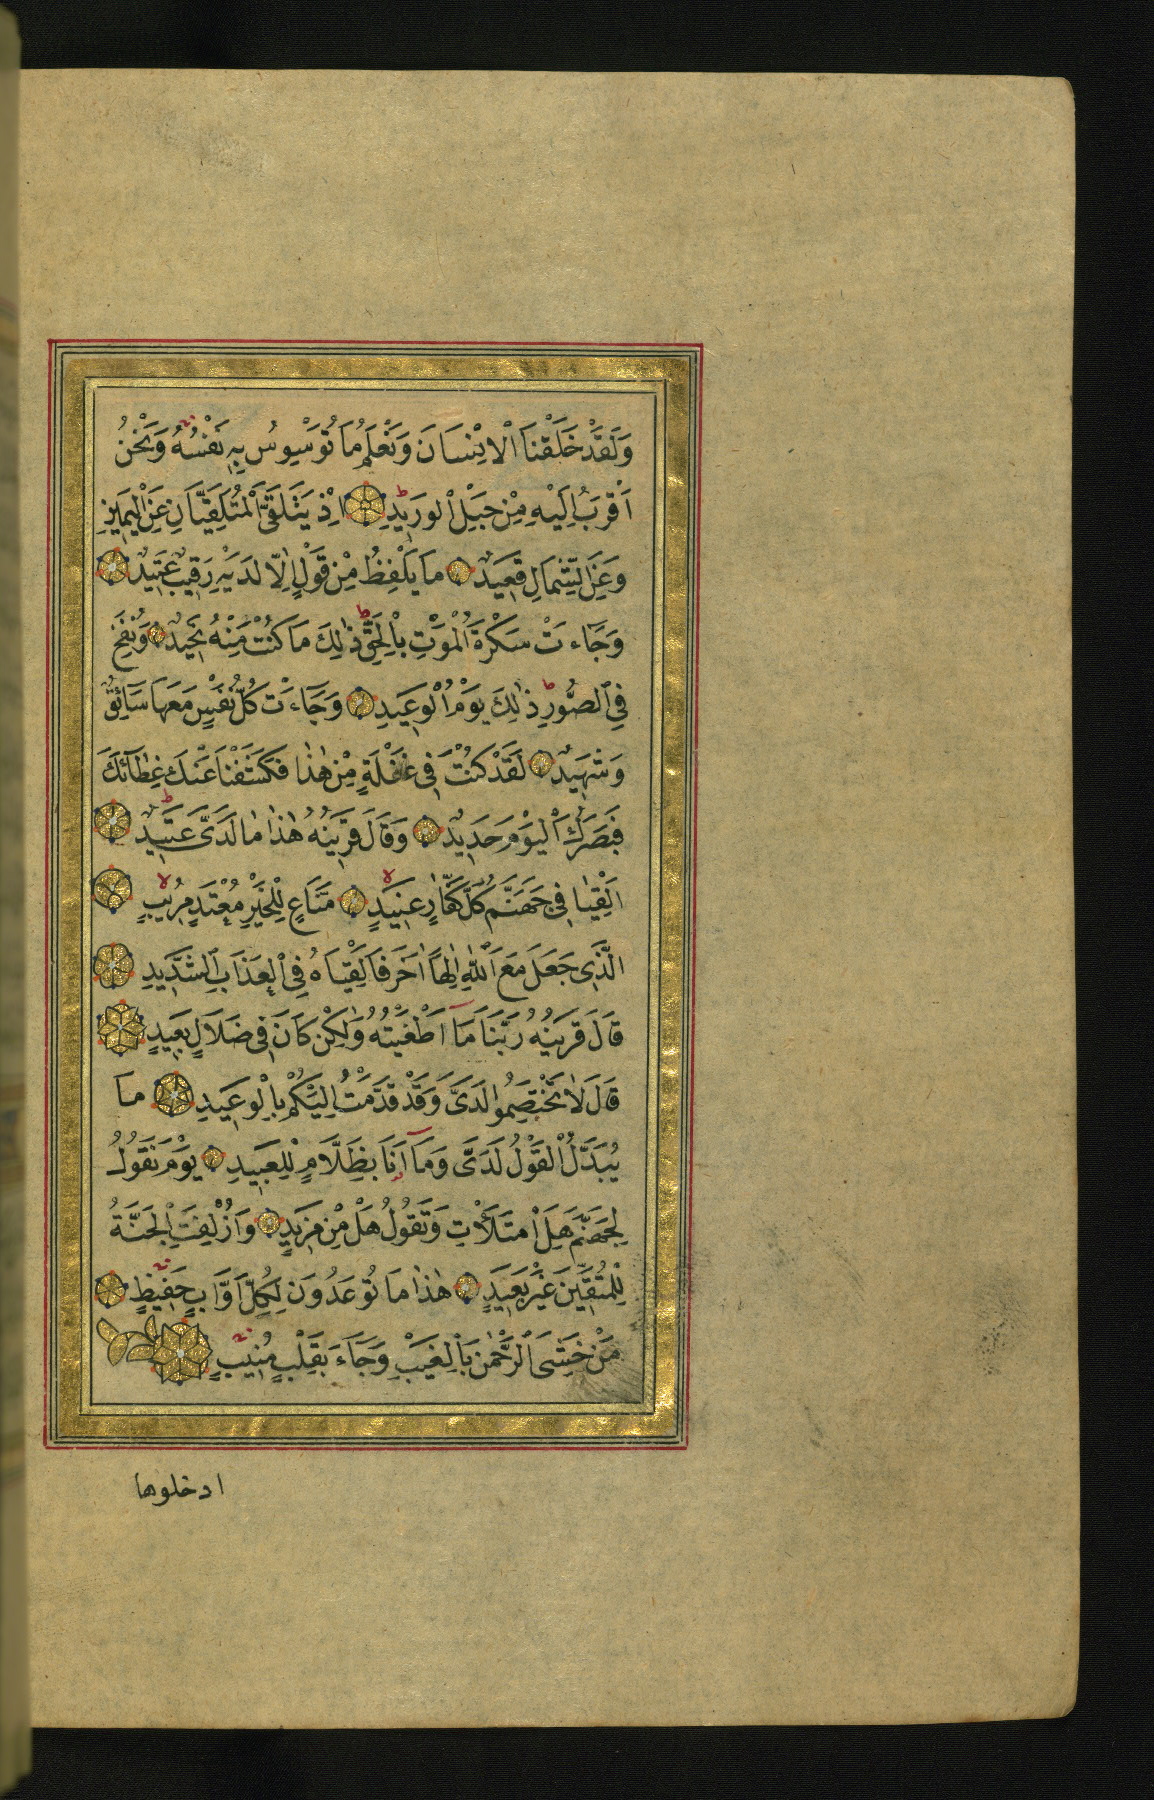 وَلَقَدْ خَلَقْنَا الْاِنْسَانَ وَنَعْلَمُ مَا تُوَسْوِسُ بِهِ نَفْسُهُ وَنَحْنُ
اَقْرَبُ اِلَيْهِ مِنْ حَبْلِ الْوَرِيدِ اِذْ يَتَلَقَّى الْمُتَلَقِّيَانِ عَنِ الْيَمِينِ
وَعَنِ الشِّمَالِ قَعِيدٌ مَا يَلْفِظُ مِنْ قَوْلٍ اِلَّا لَدَيْهِ رَقِيبٌ عَتِيدٌ
وَجَاءَتْ سَكْرَةُ الْمَوْتِ بِالْحَقِّ ذٰلِكَ مَا كُنْتَ مِنْهُ تَحِيدُ وَنُفِخَ
فِي الصُّورِ ذٰلِكَ يَوْمُ الْوَعِيدِ وَجَاءَتْ كُلُّ نَفْسٍ مَعَهَا سَائِقٌ
وَشَهِيدٌ لَقَدْ كُنْتَ فِي غَفْلَةٍ مِنْ هٰذَا فَكَشَفْنَا عَنْكَ غِطَائَكَ
فَبَصَرُكَ الْيَوْمَ حَدِيدٌ وَقَالَ قَرِينُهُ هٰذَا مَا لَدَيَّ عَتِيدٌ
اَلْقِيَا فِي جَهَنَّمَ كُلَّ كَفَّارٍ عَنِيدٍ مَنَّاعٍ لِلْخَيْرِ مُعْتَدٍ مُرِيبٍ
الَّذِي جَعَلَ مَعَ اللّٰهِ اِلٰهًا اٰخَرَ فَاَلْقِيَاهُ فِي الْعَذَابِ الشَّدِيدِ
قَالَ قَرِينُهُ رَبَّنَا مَا اَطْغَيْتُهُ وَلٰكِنْ كَانَ فِي ضَلَالٍ بَعِيدٍ
قَالَ لَا تَخْتَصِمُوا لَدَيَّ وَقَدْ قَدَّمْتُ اِلَيْكُمْ بِالْوَعِيدِ مَا
يُبَدَّلُ الْقَوْلُ لَدَيَّ وَمَا اَنَا بِظَلَّامٍ لِلْعَبِيدِ يَوْمَ نَقُولُ
لِجَهَنَّمَ هَلِ امْتَلَأْتِ وَتَقُولُ هَلْ مِنْ مَزِيدٍ وَاُزْلِفَتِ الْجَنَّةُ
لِلْمُتَّقِينَ غَيْرَ بَعِيدٍ هٰذَا مَا تُوعَدُونَ لِكُلِّ اَوَّابٍ حَفِيظٍ
مَنْ خَشِيَ الرَّحْمٰنَ بِالْغَيْبِ وَجَاءَ بِقَلْبٍ مُنِيبٍ
ادخلوها